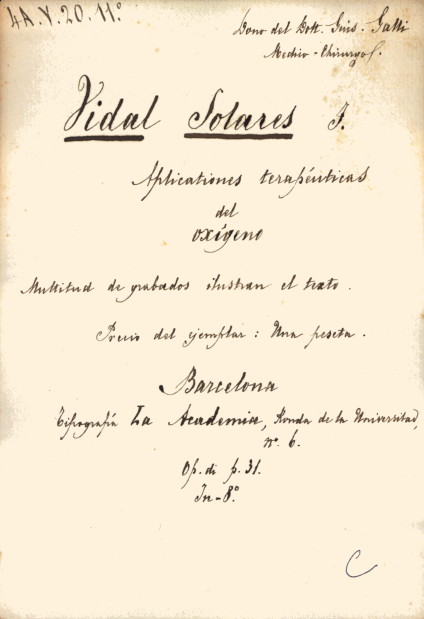 4A.Y.20.11º
Dono del Dott. Gius. Galli
Medico-Chirurgo.
Vidal Solares F.
Aplicationes terapéuticas
del
oxígeno
Multitud de grabados ilustran el texto.
Precio del ejemplar: Una peseta.
Barcelona
Tipografía La Academia, Ronda de la Universitad,
nº 6.
Op. di p. 31.
In-8º.
C